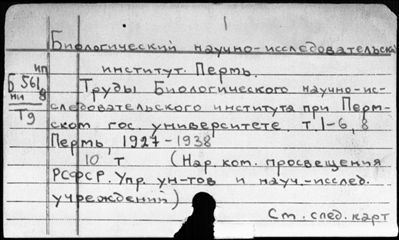 Биологический научно-исследовательск
институт. Пермь.
ип
Б 561
8
нии
Т9
Труды Биологического научно-ис-
следовательского института при Перм-
ском гос. университете. т. 1-6, 8
Пермь, 1927-1938
10 т (Нар. ком. просвещения
РСФСР. Упр. ун-тов и науч.-исслед.
учреждений)
См. след. карт